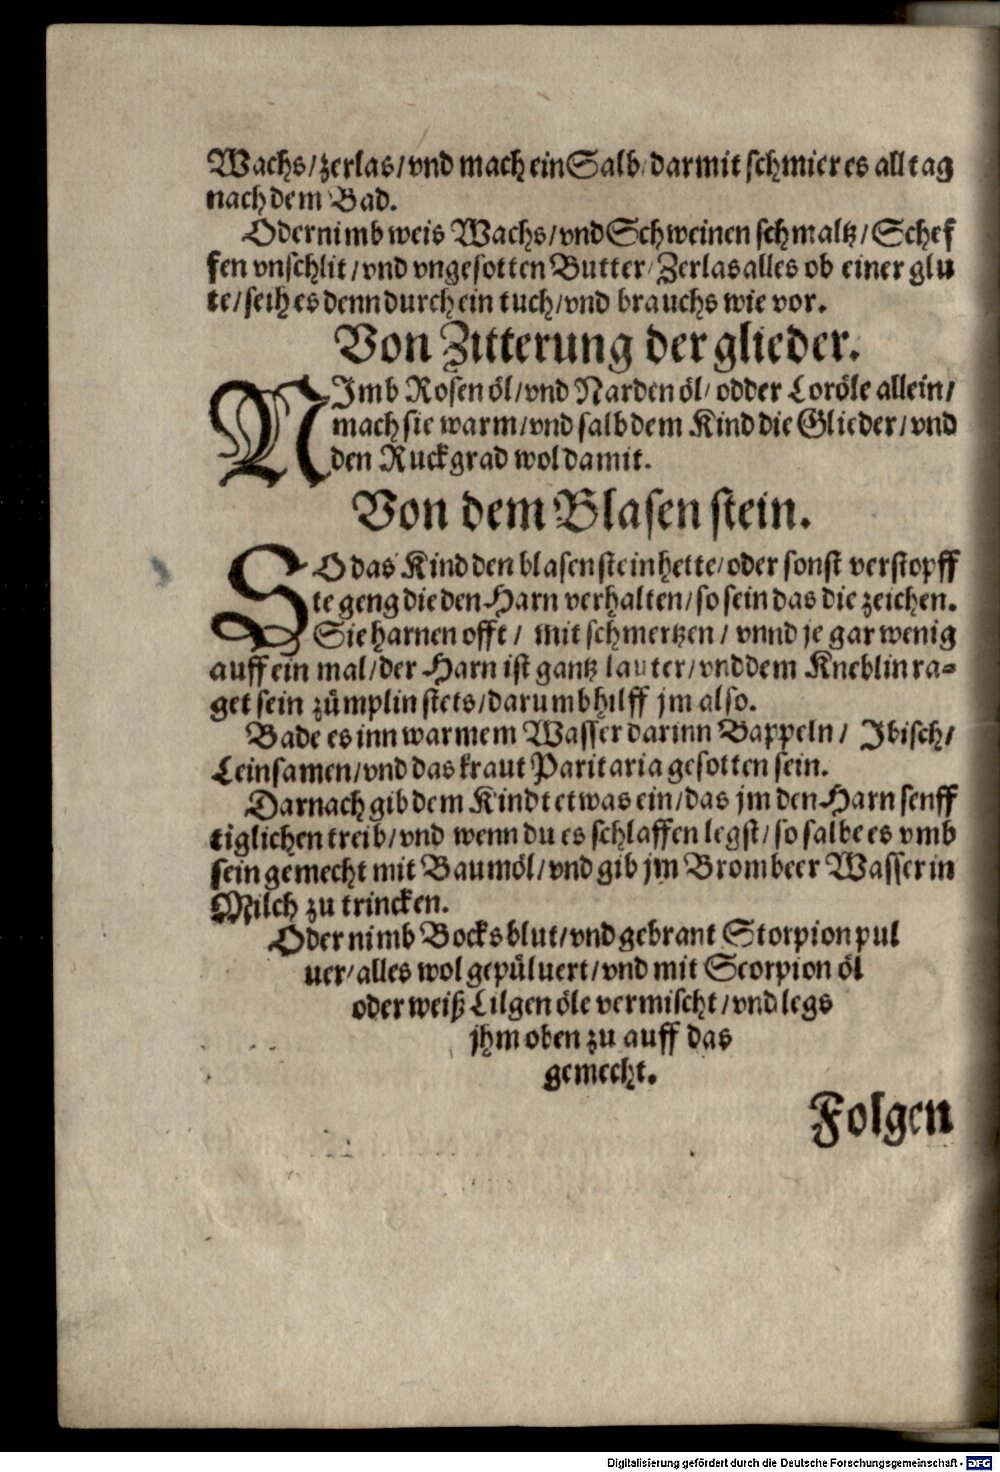 Wachs/zerlas/vnd mach ein Salb/darmit schmier es all tag
nach dem Bad.
Oder nimb weis Wachs/vnd Schweinen schmaltz/Schef
fen vnschlit/vnd vngesotten Butter/Zerlas alles ob einer glu
te/seih es denn durch ein tuch/vnd brauchs wie vor.
Von Zitterung der glieder.
NImb Rosen öl/vnd Narden öl/odder Loröle allein/
mach sie warm/vnd salb dem Kind die Glieder/vnd
den Ruckgrad wol damit.
Von dem Blasen stein.
SO das Kind den blasen stein hette/oder sonst verstopff
te geng die den Harn verhalten/so sein das die zeichen.
Sie harnen offt/ mit schmertzen/ vnnd je gar wenig
auff ein mal/der Harn ist gantz lauter/vnd dem Kneblin ra-
get sein zümplin stets/darumb hilff jm also.
Bade es inn warmem Wasser darinn Bappeln/ Jbisch/
Leinsamen/vnd das kraut Paritaria gesotten sein.
Darnach gib dem Kindt etwas ein/das jm den Harn senff
tiglichen treib/vnd wenn du es schlaffen legst/so salbe es vmb
sein gemecht mit Baumöl/vnd gib jm Brombeer Wasser in
Milch zu trincken.
Oder nimb Bocks blut/vnd gebrant Storpion pul
uer/alles wol gepüluert/vnd mit Scorpion öl
oder weiß Lilgen öle vermischt/vnd legs
jhm oben zu auff das
gemecht.
Folgen
Digitalisierung gefördert durch die Deutsche Forschungsgemeinschaft - DFG